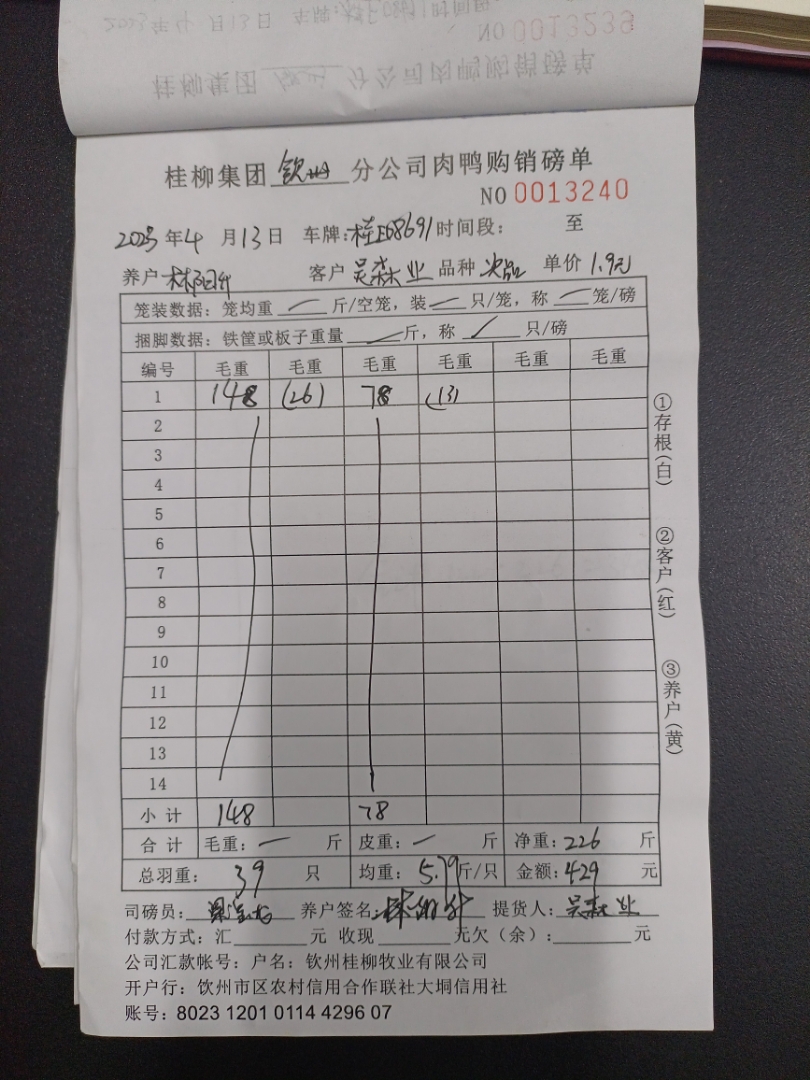 桂柳集团 钦州 分公司肉鸭购销磅单
NO 0013240
2023 年 4 月 13 日 车牌: 桂E08691 时间段: 至
养户 客户 吴森业 品种 次品 单价 1.9元
笼装数据: 笼均重 — 斤/空笼, 装 — 只/笼, 称 — 笼/磅
捆脚数据: 铁筐或板子重量 — 斤, 称 / 只/磅
编号 毛重 毛重 毛重 毛重 毛重 毛重
1 148 (26) 78 (13)
2
3
4
5
6
7
8
9
10
11
12
13
14
小计 148 78
合计 毛重: — 斤 皮重: — 斤 净重: 226 斤
总羽重: 39 只 均重: 5.79 斤/只 金额: 429 元
司磅员: 养户签名: 提货人: 吴森业
付款方式: 汇 元 收现 元欠(余): 元
公司汇款帐号: 户名: 钦州桂柳牧业有限公司
开户行: 饮州市区农村信用合作联社大垌信用社
账号: 8023 1201 0114 4296 07
①存根(白)
②客户(红)
③养户(黄)